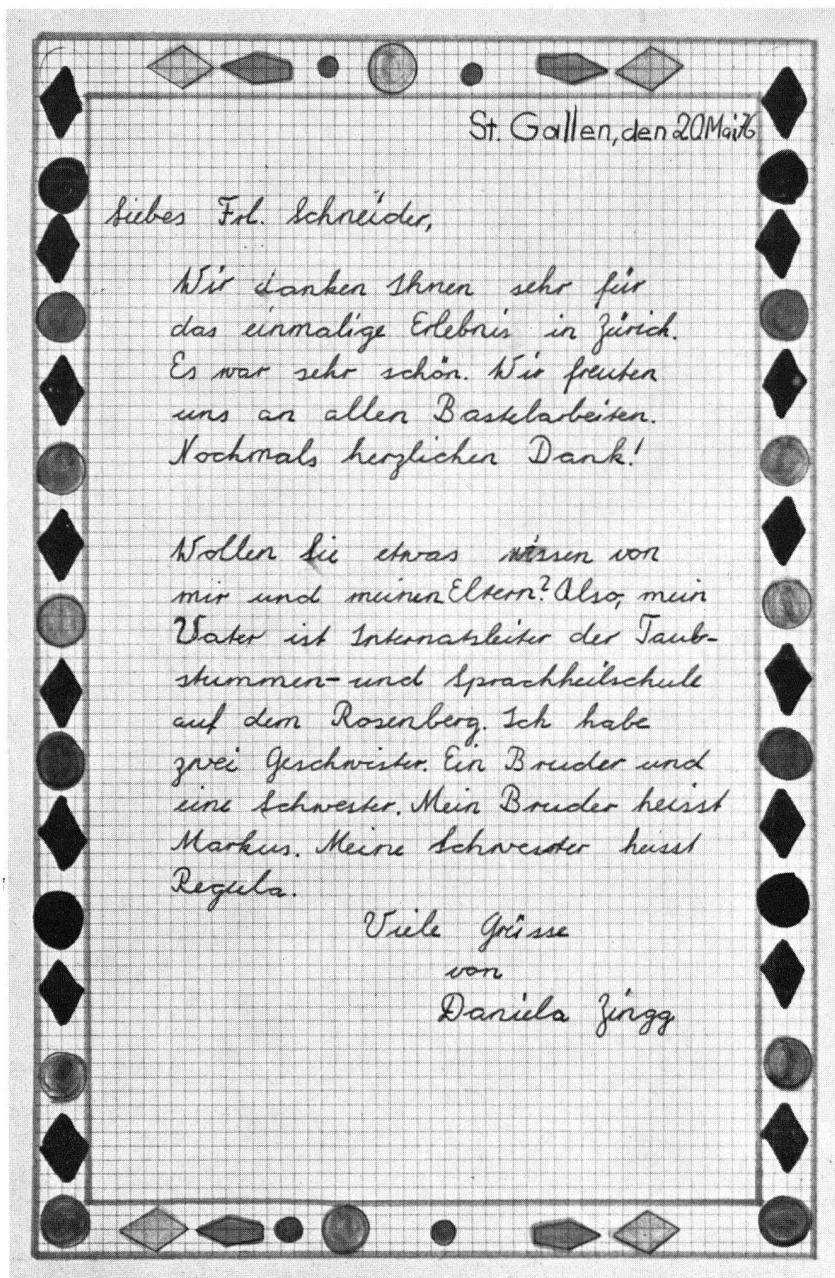 St. Gallen, den 20 Mai 76
Liebes Frl. Schneider,
Wir danken Ihnen sehr für
das einmalige Erlebnis in Zürich.
Es war sehr schön. Wir freuten
uns an allen Bastelarbeiten.
Nochmals herzlichen Dank!
Wollen Sie etwas wissen von
mir und meinen Eltern? Also, mein
Vater ist Internatsleiter der Taub-
stummen- und Sprachheilschule
auf dem Rosenberg. Ich habe
zwei Geschwister. Ein Bruder und
eine Schwester. Mein Bruder heisst
Markus. Meine Schwester heisst
Regula.
Viele Grüsse
von
Daniela Zingg